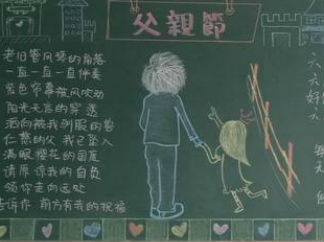 父親節
老旧管风琴的角落
一直一直一直伴奏
黑色帘幕被风吹动
阳光无言的穿透
洒向被我驯服的兽
仁慈的父 我已坠入
满眼樱花的国度
请原谅我的自负
你走向远处
告诉你 前方有我的祝福